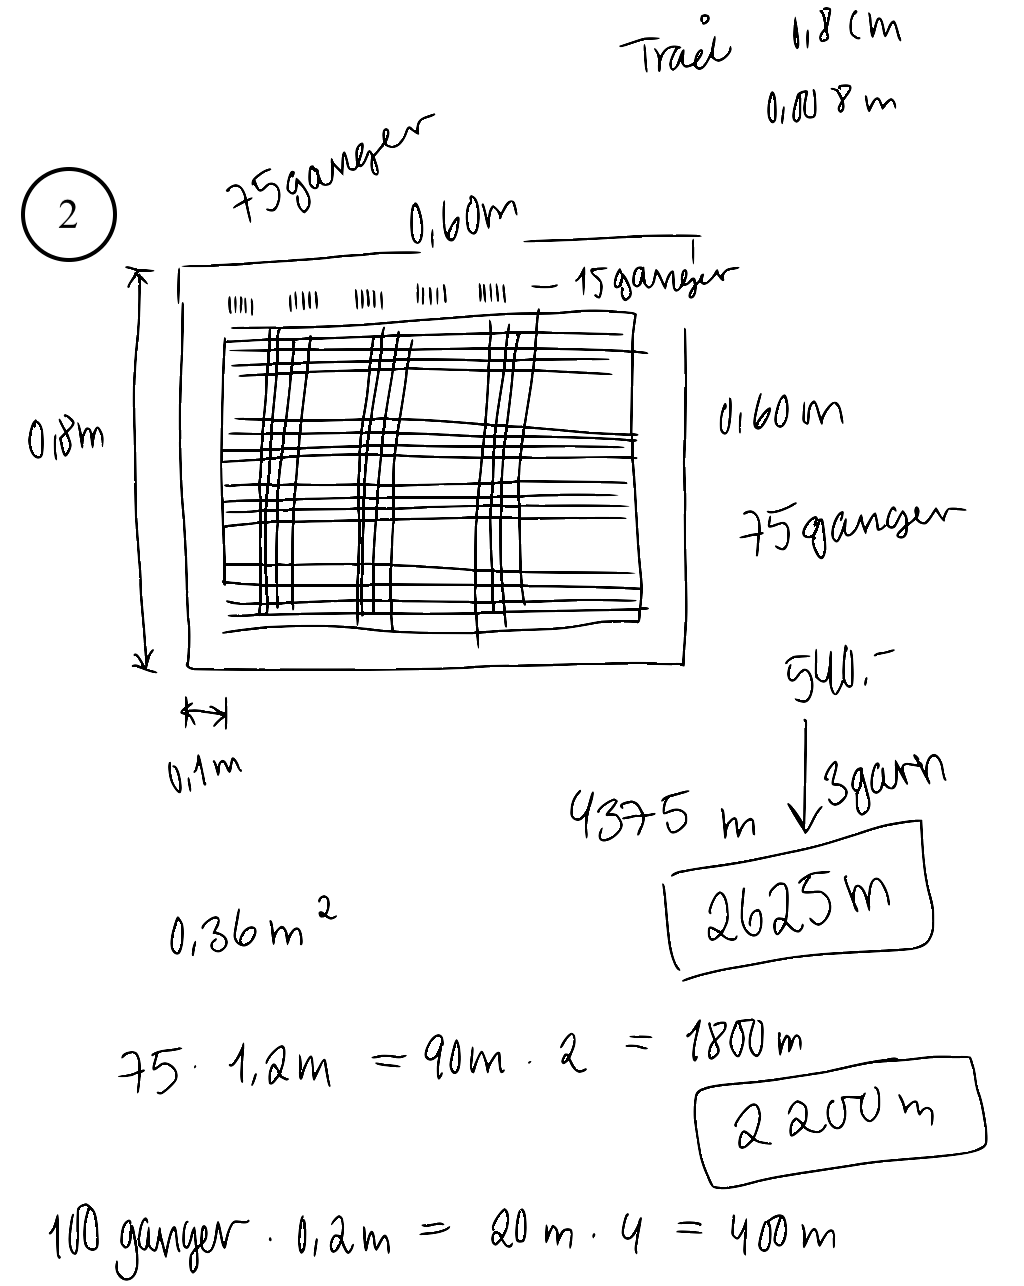 Tråd 0,8 cm
0,008 m
75 ganger
2
0,60m
15 ganger
0,8m
0,60 m
75 ganger
540.-
0,1m
3garn
4375 m
2625 m
0,36 m²
75 · 1,2m = 90m · 2 = 1800 m
2200 m
100 ganger · 0,2m = 20 m · 4 = 400 m